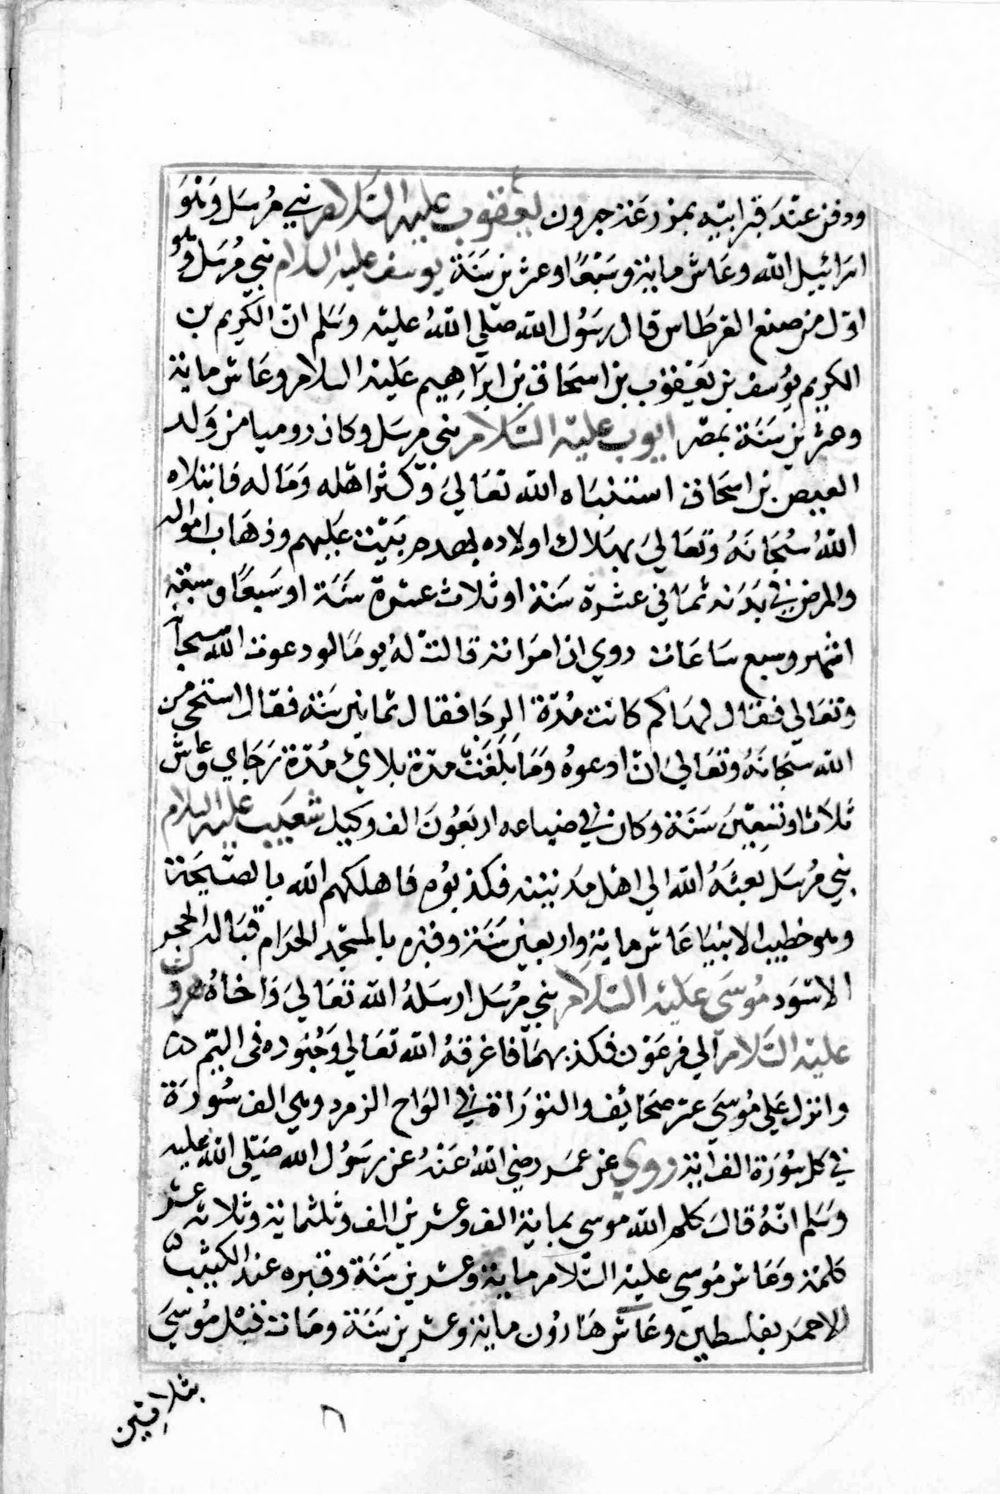 ودفن عند قبر ابيه بمزرعة حبرون يعقوب عليه السلام نبي مرسل وهو
اسرائيل الله وعاش ماية وسبعا وعشرين سنة يوسف عليه السلام نبي مرسل وهو
اول من صنع القرطاس قال رسول الله صلي الله عليه وسلم ان الكريم بن
الكريم يوسف بن يعقوب بن اسحاق بن ابراهيم عليه السلام وعاش ماية
وعشرين سنة بمصر ايوب عليه السلام نبي مرسل وكان روميا من ولد
العيص بن اسحاق استنباه الله تعالي وكثر اهله وماله فابتلاه
الله سبحانه وتعالي بهلاك اولاده بهدم بيت عليهم وذهاب امواله
والمرض في بدنه ثماني عشرة سنة او ثلاث عشرة سنة او سبعا وسبعة
اشهر وسبع ساعات روي ان امراته قالت له يوما لو دعوت الله سبحا
وتعالي فقال لها كم كانت مدة الرخا فقال ثمانين سنة فقال استحي من
الله سبحانه وتعالي ان ادعوه وما بلغت مدة بلاي مدة رخاي وعاش
ثلاثا وتسعين سنة وكان في ضياعه اربعون الف وكيل شعيب عليه السلام
نبي مرسل بعثه الله الي اهل مدينه فكذبوه فاهلكهم الله بالصيحة
وهو خطيب الانبيا عاش ماية واربعين سنة وقبره بالمسجد الحرام قبالة الحجر
الاسود موسي عليه السلام نبي مرسل ارسله الله تعالي واخاه هرون
عليه السلام الي فرعون فكذبهما فاغرقه الله تعالي وجنوده في اليم
وانزل علي موسي عشر صحائف والتوراة في الواح الزمرد وهي الف سورة
في كل سورة الف اية روي عن عمر رضي الله عنه عن رسول الله صلي الله عليه
وسلم انه قال كلم الله موسي بماية الف وعشرين الف وثلثماية وثلاثه عشر
كلمة وعاش موسي عليه السلام ماية وعشرين سنة وقبره عند الكثيب
الاحمر بفلسطين وعاش هارون ماية وعشرين سنة ومات قبل موسي
بثلاثين
٦